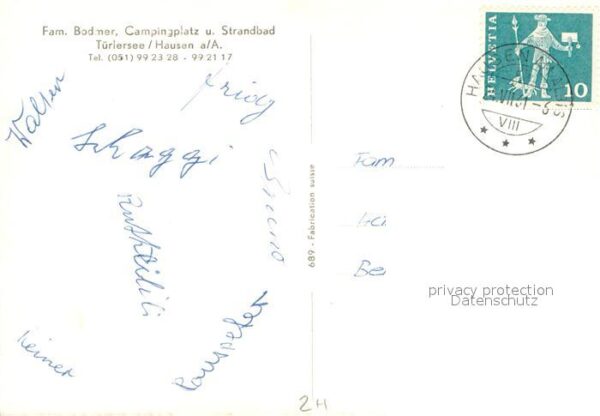 Fam. Bodmer, Campingplatz u. Strandbad
Türlersee / Hausen a/A.
Tel. (051) 99 23 28 - 99 21 17
HELVETIA
10
HAUSEN AM ALBIS
VIII
Walter
Fridg
Schaggi
Bruno
Ruth Heidi
Hanspeter
Reiner
689 - Fabrication suisse
Fam
Ha
Be
privacy protection
Datenschutz
2H